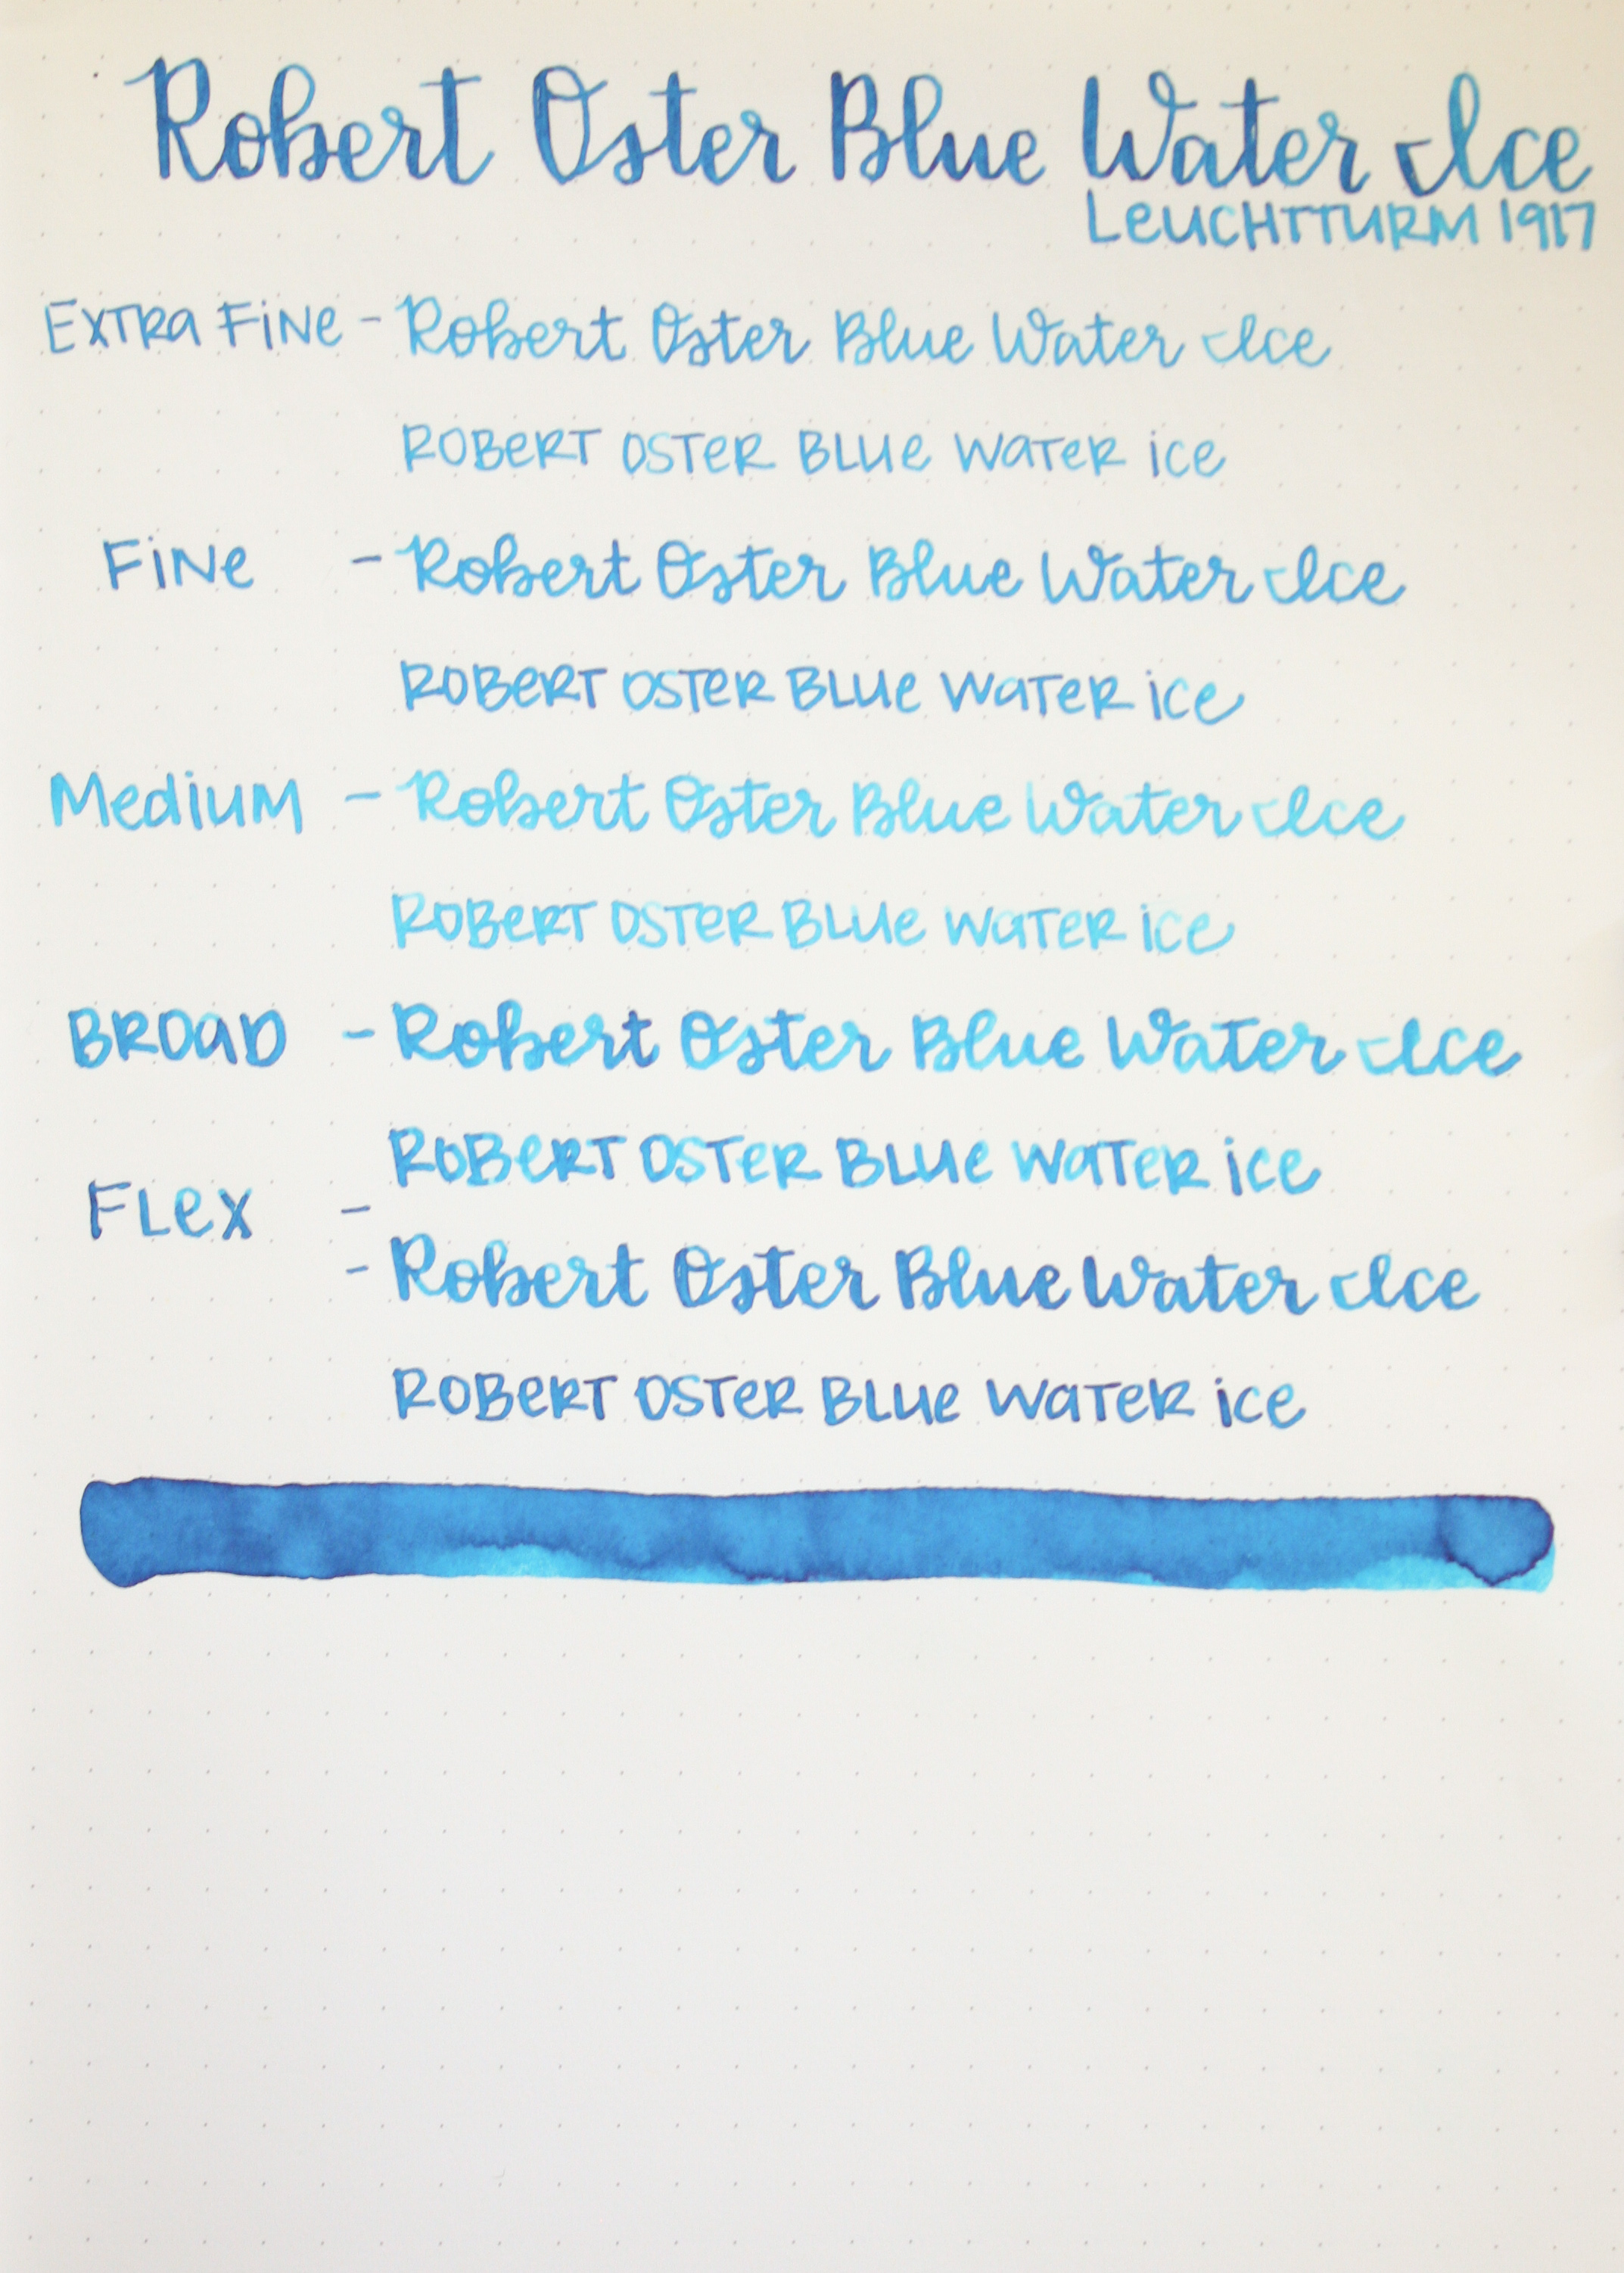 Robert Oster Blue Water Ice
LEUCHTTURM 1917
EXTRA FINE - Robert Oster Blue Water Ice
ROBERT OSTER BLUE WATER ICE
FINE - Robert Oster Blue Water Ice
ROBERT OSTER BLUE WATER ICE
MEDIUM - Robert Oster Blue Water Ice
ROBERT OSTER BLUE WATER ICE
BROAD - Robert Oster Blue Water Ice
ROBERT OSTER BLUE WATER ICE
FLEX -
- Robert Oster Blue Water Ice
ROBERT OSTER BLUE WATER ICE